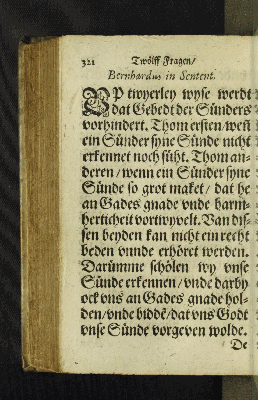 321 Twölff Fragen/
Bernhardus in Sentent.
VP twyerley wyse werdt
dat Gebedt der Sünders
vorhindert. Thom ersten/ weñ
ein Sünder syne Sünde nicht
erkennet noch süht. Thom an-
deren/ wenn ein Sünder syne
Sünde so grot maket/ dat he
an Gades gnade vnde barm-
herticheit vortwyvelt. Van dys-
sen beyden kan nicht ein recht
beden vnnde erhöret werden.
Darümme schölen wy vnse
Sünde erkennen/ vnde darby
ock vns an Gades gnade hol-
den/ vnde biddẽ/ dat vns Godt
vnse Sünde vorgeven wolde.
De